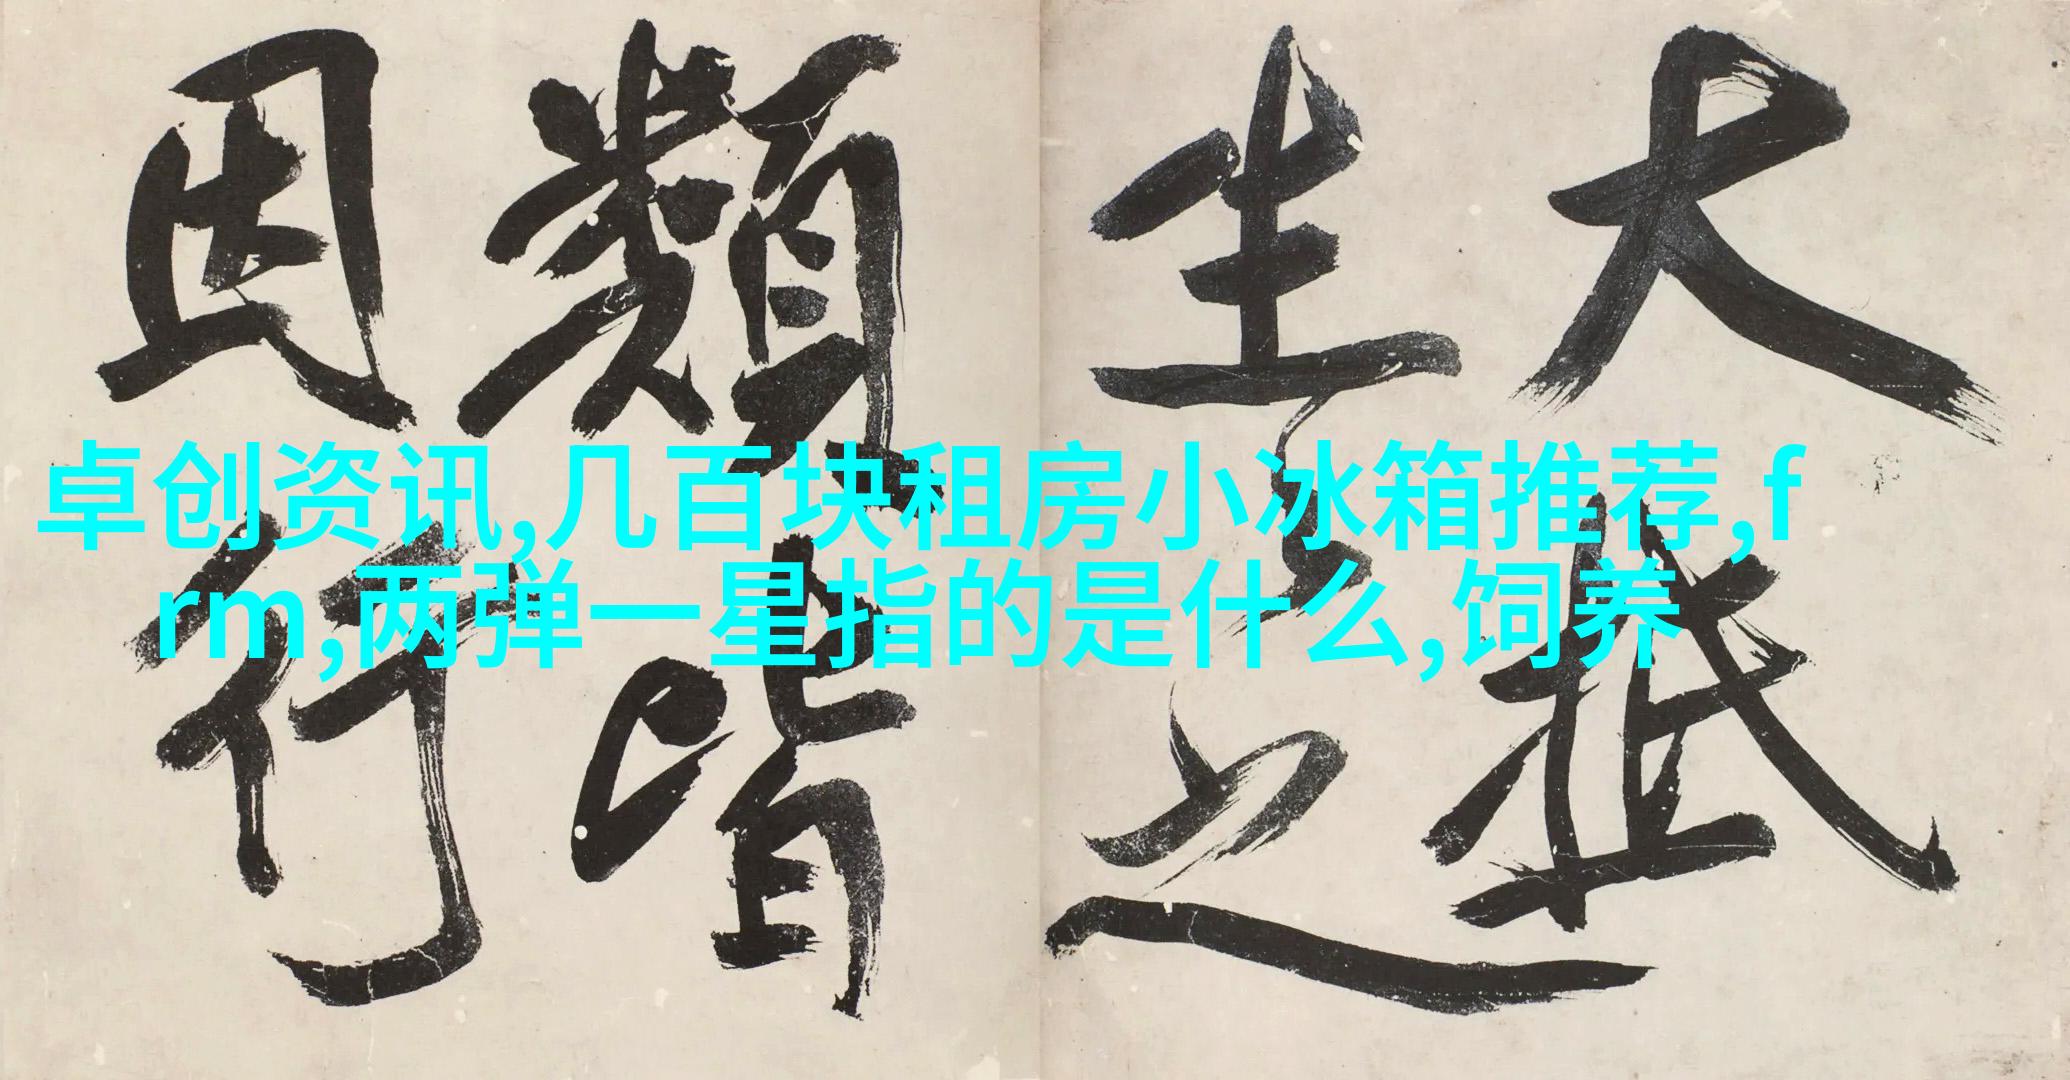 大抵
生之
類皆
因行
卓创资讯,几百块租房小冰箱推荐,f
rm,两弹一星指的是什么,饲养